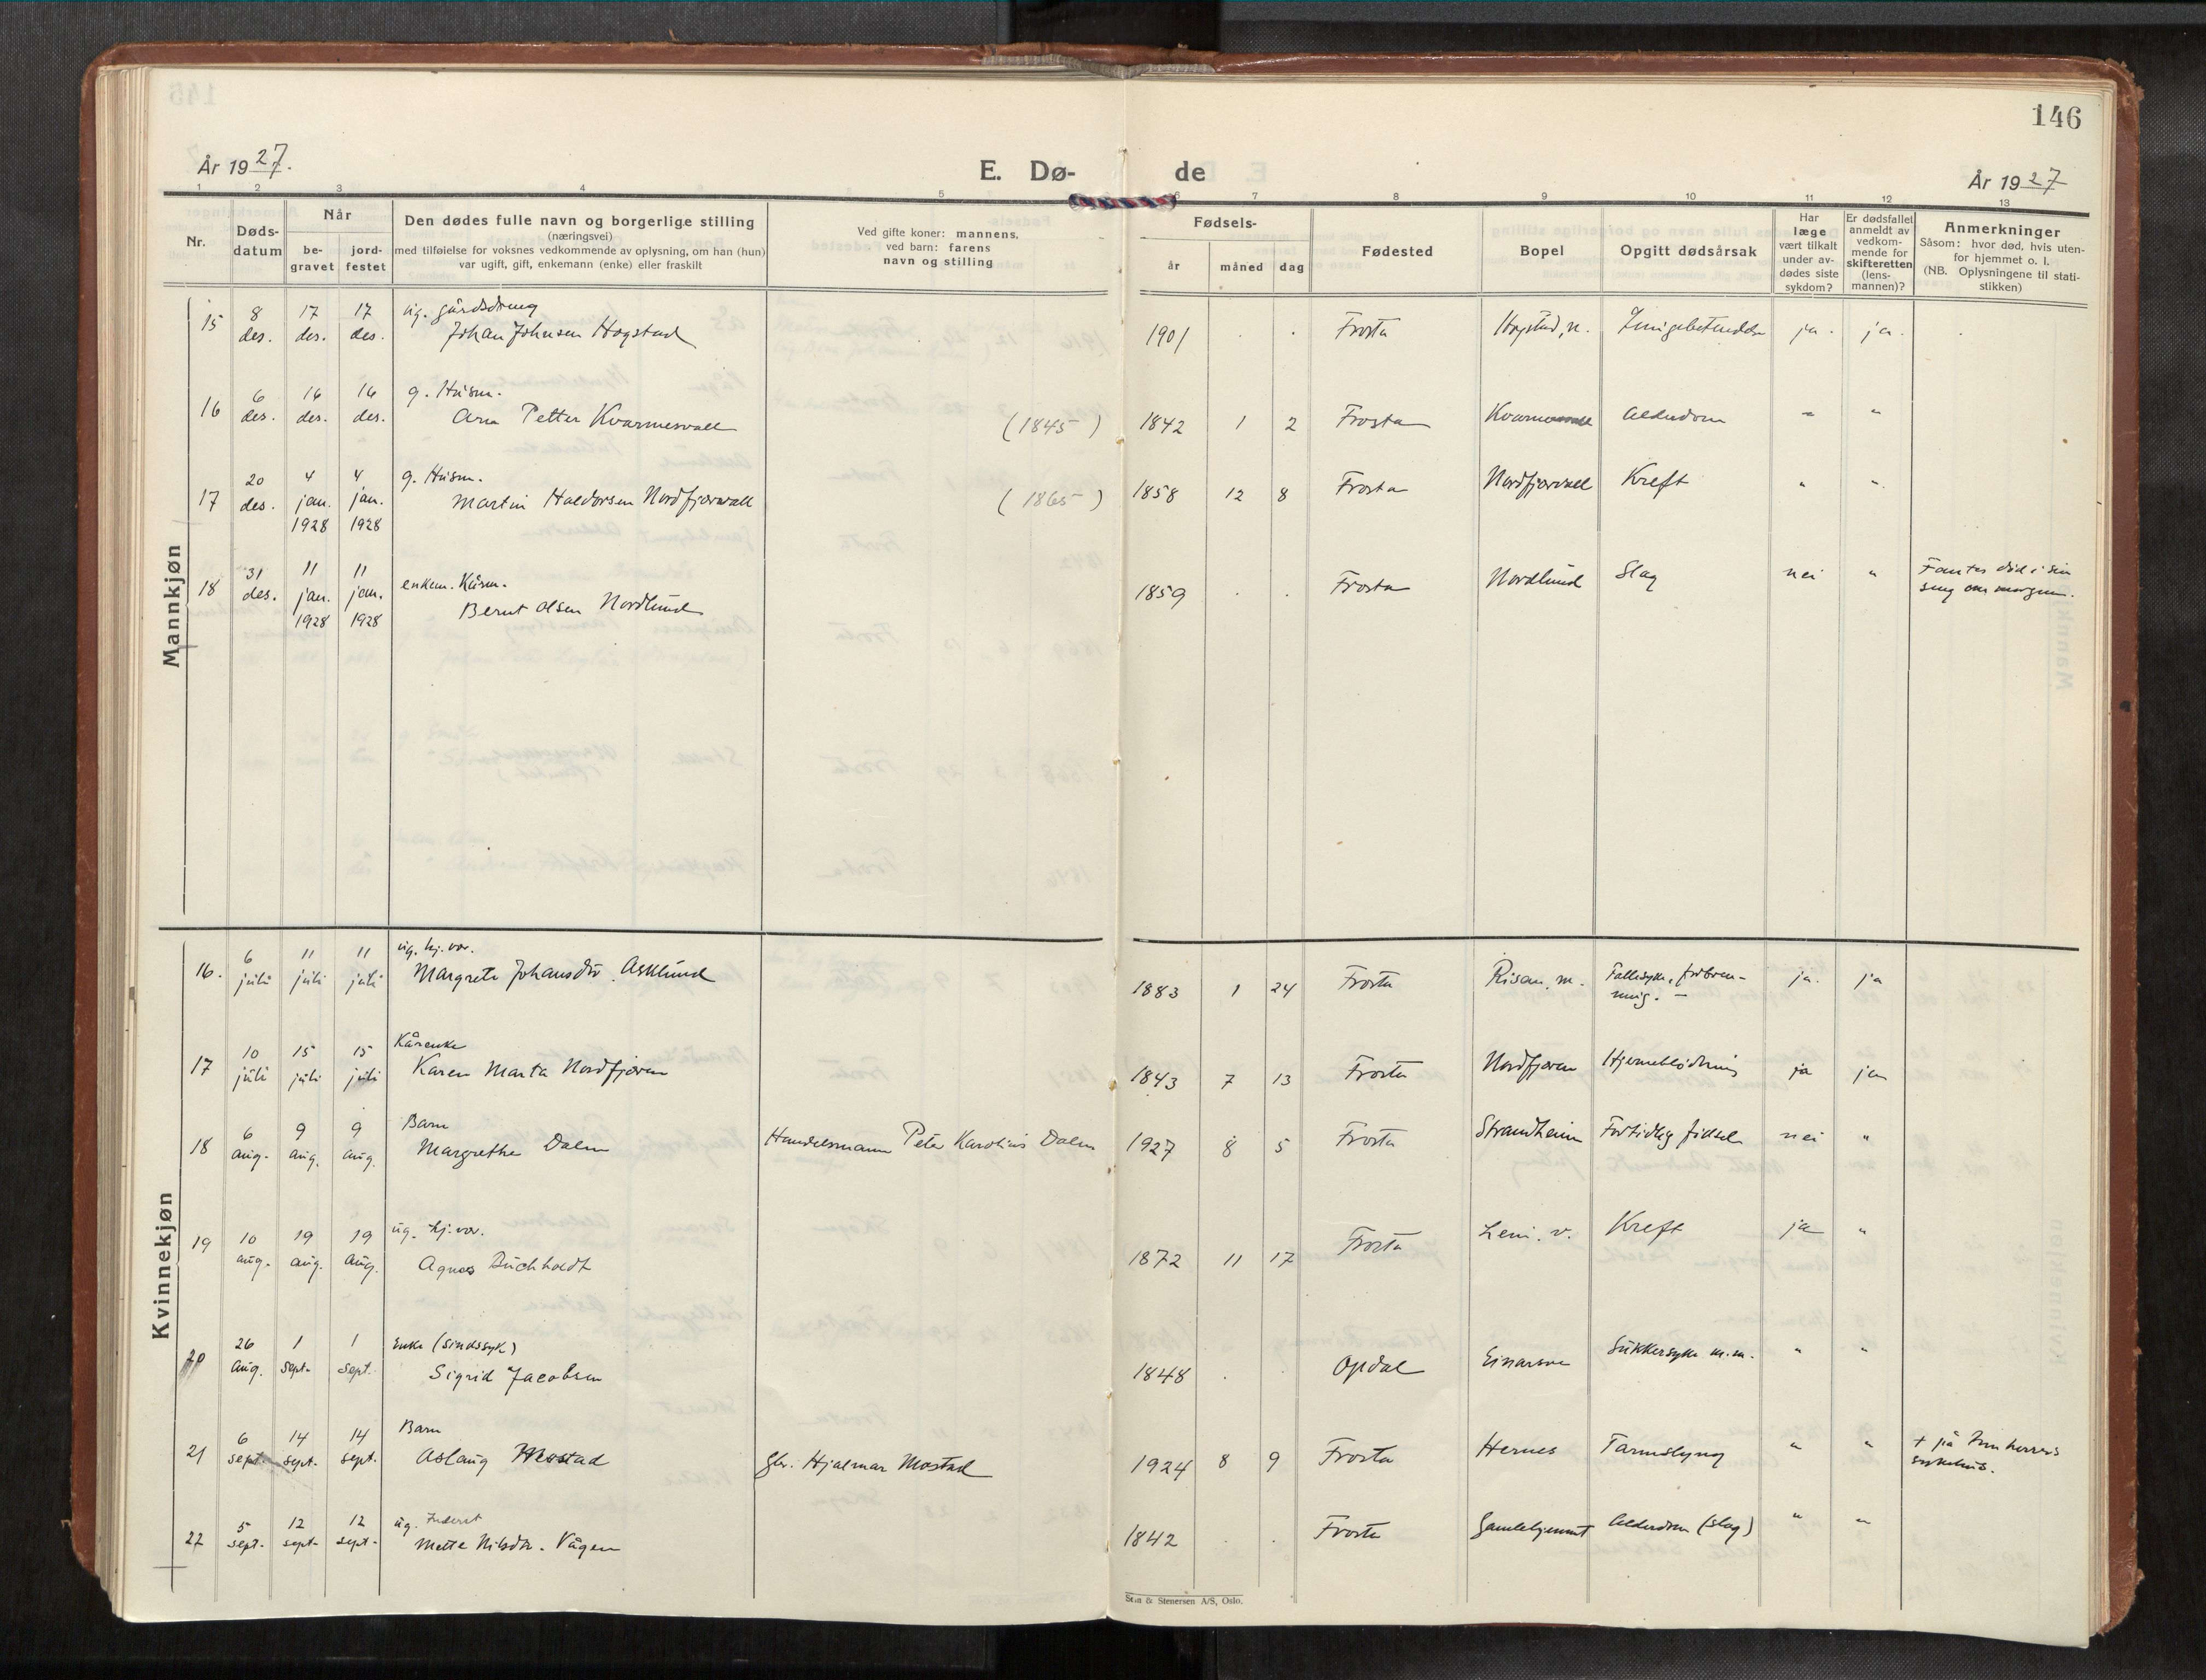 146
År 1927.
E. Dø-
de
År 1927
1 2 3 4 5 6 7 8 9 10 11 12 13
Nr.
Døds-
datum
Når
be-
gravet
jord-
festet
Den dødes fulle navn og borgerlige stilling
(næringsvei)
med tilføielse for voksnes vedkommende av oplysning, om han (hun)
var ugift, gift, enkemann (enke) eller fraskilt
Ved gifte koner: mannens,
ved barn: farens
navn og stilling
Fødsels-
år måned dag
Fødested
Bopel
Opgitt dødsårsak
Har
læge
vært tilkalt
under av-
dødes siste
sykdom?
Er dødsfallet
anmeldt av
vedkom-
mende for
skifteretten
(lens-
mannen)?
Anmerkninger
Såsom: hvor død, hvis uten-
for hjemmet o. l.
(NB. Oplysningene til stati-
stikken)
Mannkjøn
15 8 des. 17 des. 17 des. ug. gårdsdreng
Johan Johnsen Hogstad 1901 . . Frosta Hogstad, n. Lungebetendelse ja. ja.
16 6 des. 16 des. 16 des. g. Husm.
Petter Kvarmesvall (1845) 1842 1 2 Frosta Alderdom " "
17 20 des. 4 jan. 1928 4 jan. 1928 g. Husm.
Martin Haldorsen Nordfjærvall (1865) 1858 12 8 Frosta Nordfjærvall Kreft " "
18 31 des. 11 jan. 1928 11 jan. 1928 enkem. Kårm.
Bernt Olsen Nordlund 1859 . . Frosta Nordlund Slag nei " Fantes død i sin
seng om morgen.
Kvinnekjøn
16. 6 juli 11 juli 11 juli ug. hj. vær.
Margrete Johansdtr. Asklund 1883 1 24 Frosta Risan, m. Fallesyke, forbren-
ning. – ja. ja
17 10 juli 15 juli 15 juli Kårenke
Karen Marta Nordfjæren 1843 7 13 Frosta Nordfjæren Hjerneblødning ja ja
18 6 aug. 9 aug. 9 aug. Barn
Margrethe Dalen Handelsmann Peter Karolius Dalen 1927 8 5 Frosta Strandheim Fortidlig fødsel nei "
19 10 aug. 19 aug. 19 aug. ug. hj. vær.
Agnes Buchholdt 1872 11 17 Frosta v. Kreft ja "
20 26 aug. 1 sept. 1 sept. Enke (sindssyk)
Sigrid Jacobsen 1848 . . Opdal Sukkersyke m.m. " "
21 6 sept. 14 sept. 14 sept. Barn
Aslaug Mostad Hjalmar Mostad 1924 8 9 Frosta Hernes Tarmslyng " " + på Innherreds
sykehus.
22 5 sept. 12 sept. 12 sept. ug. Inderst
Mette Nilsdtr. Vågen 1842 . . Frosta Gamlehjemmet Alderdom (slag) " "
Sten & Stenersen A/S, Oslo.